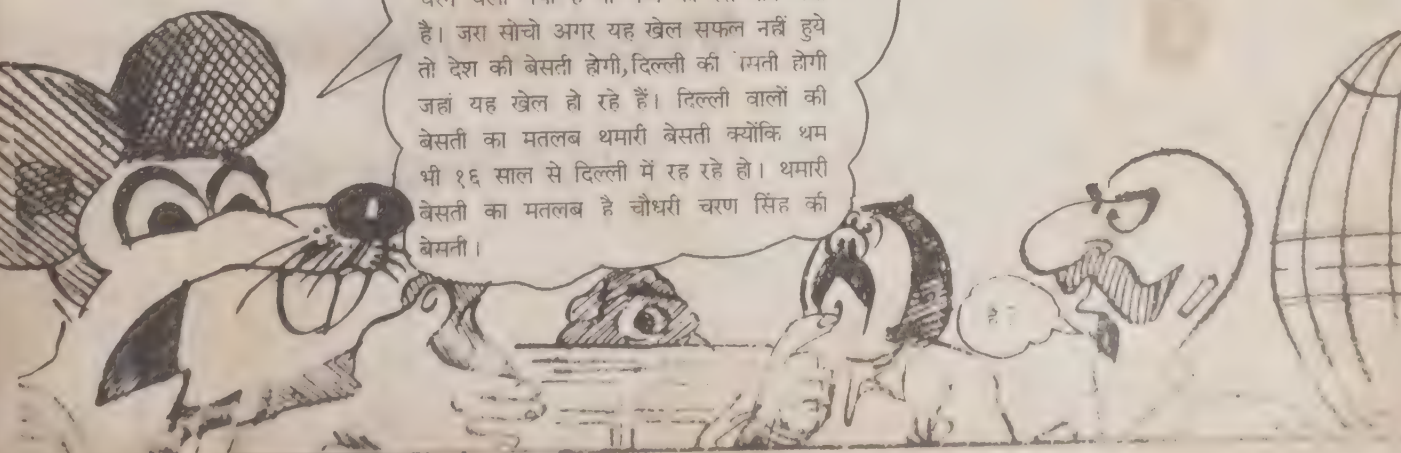 है। जरा सोचो अगर यह खेल सफल नहीं हुये
तो देश की बेसती होगी, दिल्ली की होगी
जहां यह खेल हो रहे हैं। दिल्ली वालों की
बेसती का मतलब थमारी बेसती क्योंकि थम
भी १६ साल से दिल्ली में रह रहे हो। थमारी
बेसती का मतलब है चौधरी चरण सिंह की
बेसती।